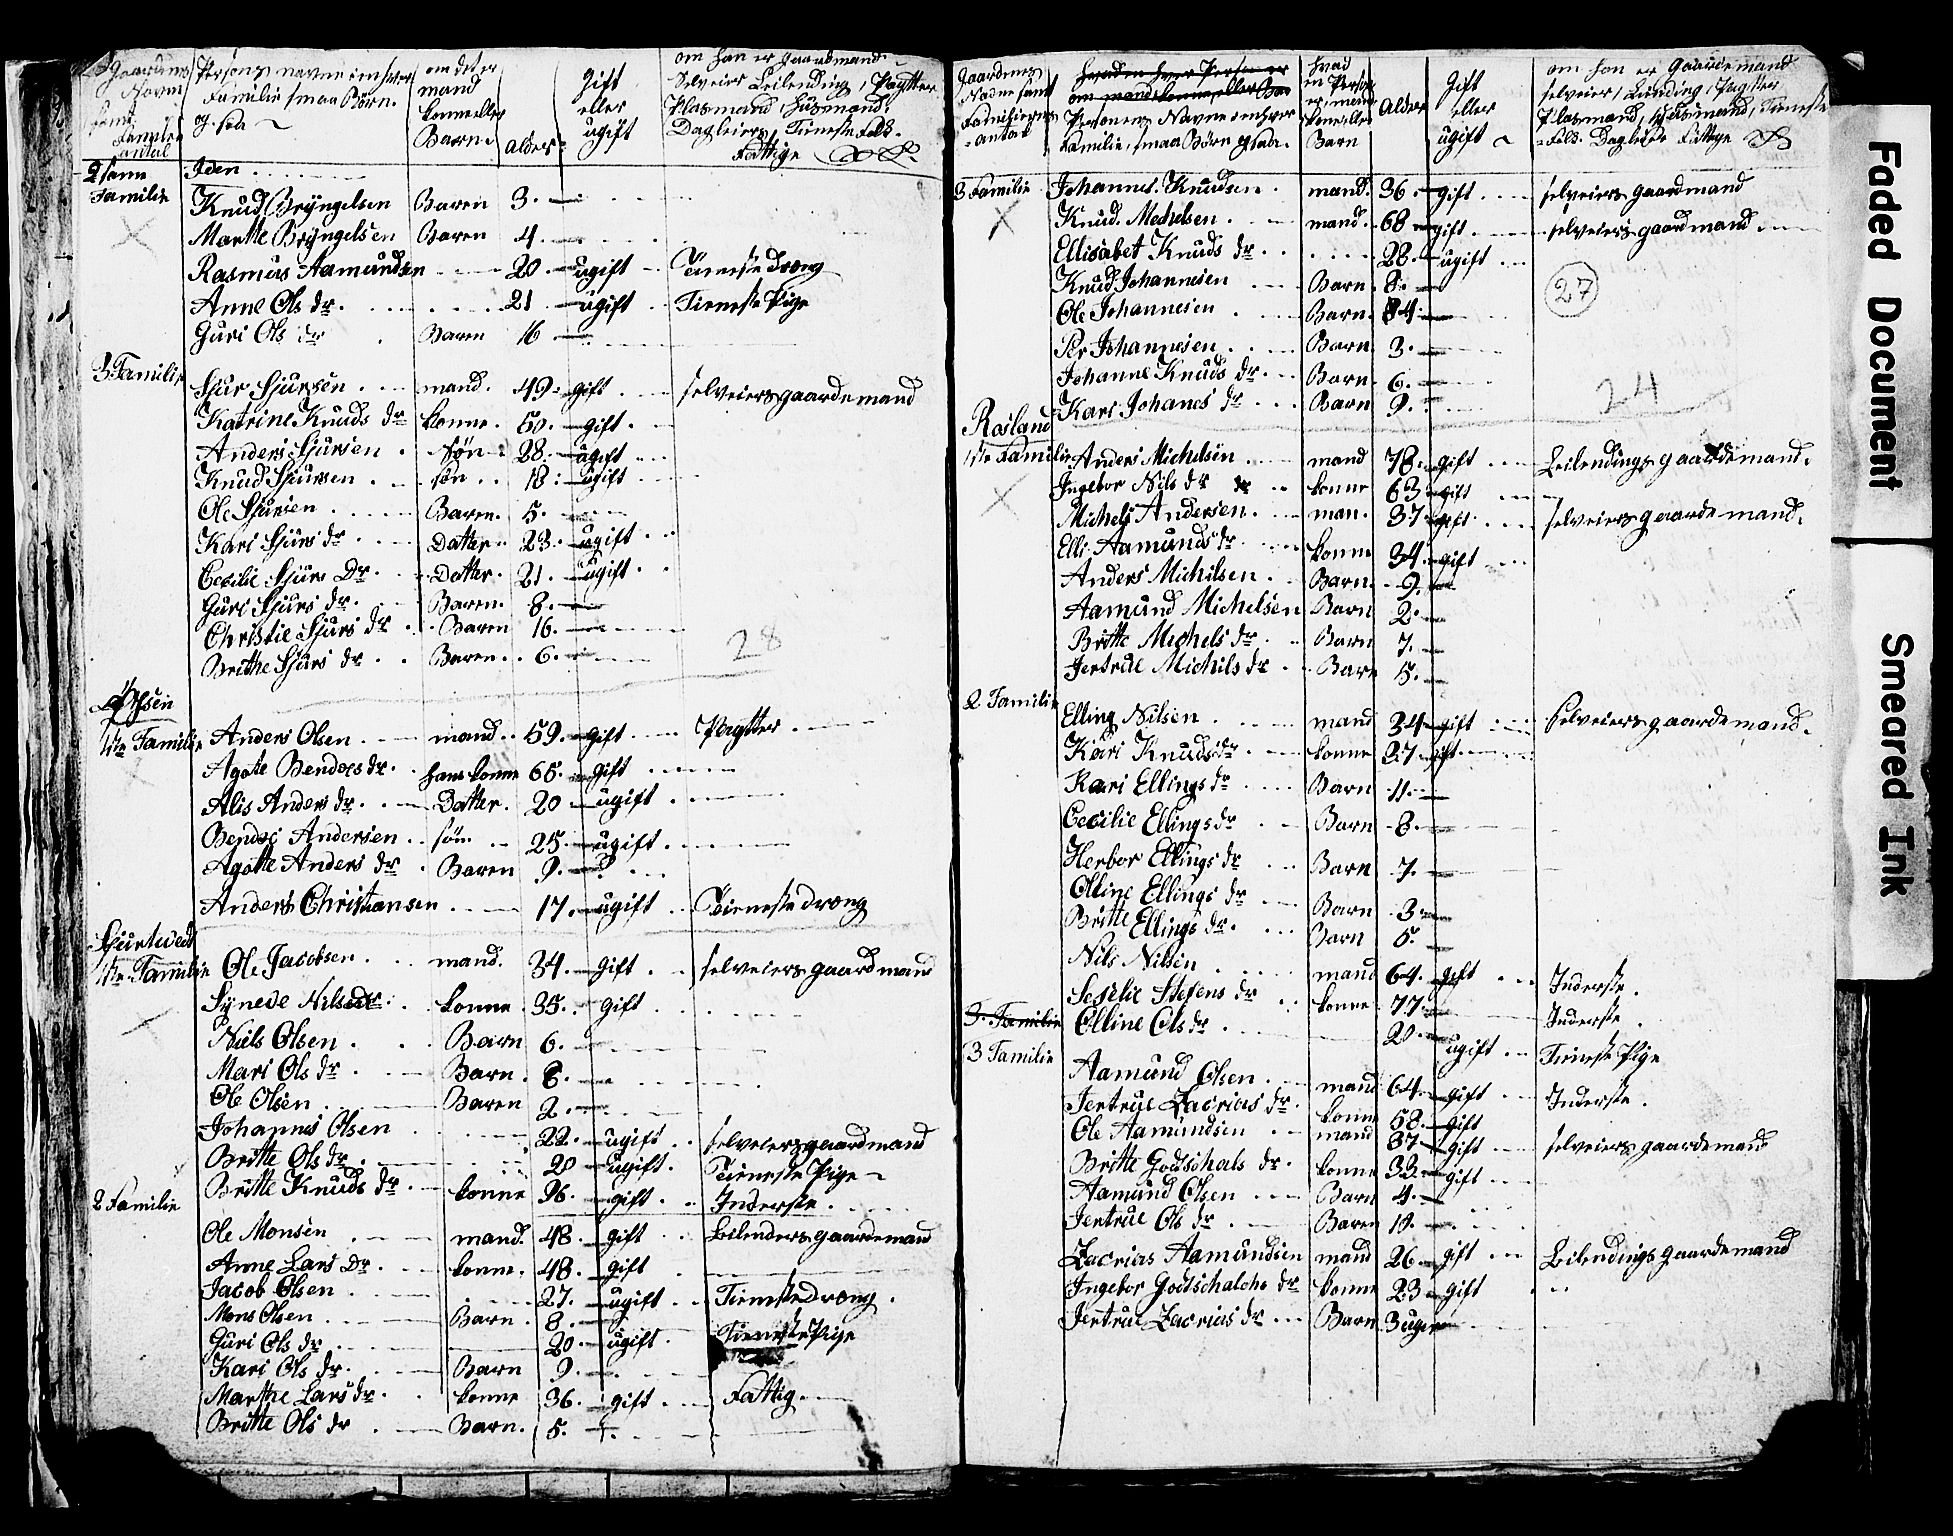 Gaardens Personens navne i enhver om det er Gift om han er Gaardmand
Navn Familie smaa Børn mand eller Selveier Leilending, Pagtter
samt og saa konne eller ugift Plasmand, Husmand
Familie Barn alder Dagleier, Tieneste Folk
antal Fattige
2 samme Iden
Familie Knud Bryngelsen Baren 3
Marthe Bryngelsen Baren 4
Rasmus Aamundsen 20 ugift Tieneste drong
Anne Ols dr 21 ugift Tieneste Pige
Guri Ols dr Baren 16
3 Familie
Sjur Sjursen mand 49 gift selveiers gaardemand
Katrine Knuds dr konne 50 gift
Anders Sjursen søn 28 ugift
Knud Sjursen søn 18 ugift
Ole Sjursen Baren 5
Kari Sjurs dr Datter 23 ugift
Cecilie Sjurs Dr Datter 21 ugift
Guri Sjurs dr Baren 8
Christie Sjurs dr Baren 16
Brithe Sjurs dr Baren 6
28
1te Familie Anders Olsen mand 59 gift Pagtter
Agate dr hans konne 65 gift
Alis Anders dr Datter 20 ugift
Andersen søn 25 ugift
Agatte Anders dr Baren 9
Anders Christiansen 17 ugift Tieneste drong
Sjurtwedt
1te Familie Ole Jacobsen mand 34 gift selveiers gaardmand
Syneve Nilsdr konne 35 gift
Niels Olsen Barn 6
Mari Ols dr Barn 8
Ole Olsen Baren 2
Johannis Olsen 22 ugift selveiers gaardmand
Britte Ols dr 20 ugift Tieneste Pige
Britte Knuds dr konne 96 gift Inderste
2 Familie
Ole Monsen mand 48 gift Leilenders gaardemand
Anne Lars Dr konne 48 gift
Jacob Olsen 27 ugift Tieneste Drong
Mons Olsen Barn 8
Guri Ols dr 20 ugift Tieneste Pige
Kari Ols dr Barn 9
Marthe Lars dr konne 36 gift Fattig
Britte Ols dr Barn 5
Gaardens hvad Gift om han er Gaardemand
Navne samt om mand konne eller Barn en Person Alder eller selveier, Leilending, Pagtter
Familiernes Personens Navne i enhver er, mand ugift Plasmand, Husmand, Tieneste
antal Familie, smaa Børn og saa konne eller Barn Folk Dagleier Fattige
3 Familie Johannes Knudsen mand 36 gift selveiers gaardmand
Knud Mechelsen mand 68 gift selveiers gaardmand
Ellisabet Knuds dr 28 ugift
Knud Johannesen Barn 8
27
Ole Johannesen Barn 4
Per Johannesen Barn 3
Johanne Knuds dr Barn 6
24
Kari Johanes dr Barn 9
Rosland
1te Familie Anders Michelsen mand 78 gift Leilendings gaardemand
Ingebor Nils dr konne 63 gift
Michels Andersen man 37 gift selveiers gaardemand
Elli Aamunds dr konne 34 gift
Anders Michilsen Barn 9
Aamund Michelsen Barn 2
Britte Michels dr Barn 7
Jertrue Michils dr Barn 5
2 Familie
Elling Nilsen mand 34 gift Selveiers gaardemand
Kari Knuds dr konne 27 gift
Kari Ellings dr Barn 11
Cecilie Ellings dr Barn 8
Herbor Ellings dr Barn 7
Olline Ellings dr Barn 3
Britte Ellings dr Barn 5
Nils Nilsen mand 64 gift Inderste
Seselie Stefens dr konne 77 Inderste
3 Familie Olline Ols dr 20 ugift Tieneste Pige
3 Familie
Aamund Olsen mand 64 gift Inderste
Jertrue Zacrias dr konne 58 gift
Ole Aamundsen mand 37 gift selveiers gaardemand
Britte Godschals dr konne 32 gift
Aamund Olsen Barn 4
Jertrue Ols dr Baren 10
Zacrias Aamundsen mand 26 gift Leilendings gaardemand
Ingebor Godtschalchs dr konne 23 gift
Jertrue Zacrias dr Barn 3 uger
Faded Document
Smeared Ink